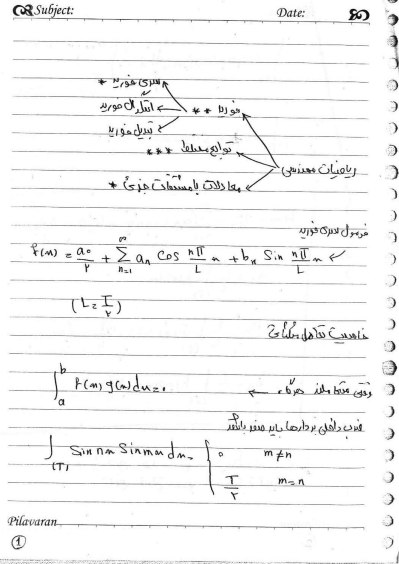 Subject: Date:
سری فوریه *
فوریه ** انتگرال فوریه
تبدیل فوریه
توابع مختلط ***
ریاضیات مهندسی
معادلات با مشتقات جزئی *
فرمول سری فوریه
f(x) = a₀/۲ + ∑_{n=1}^{∞} aₙ Cos nπ/L x + bₙ Sin nπ/L x
(L = T/۲)
خاصیت تعامل
∫_a^b f(x) g(x) dx = 0
ضرب داخلی بردارها باید صفر باشد
∫_(T) Sin nx Sin mx dx = { 0 m≠n
T/۲ m=n
Pilavaran
1